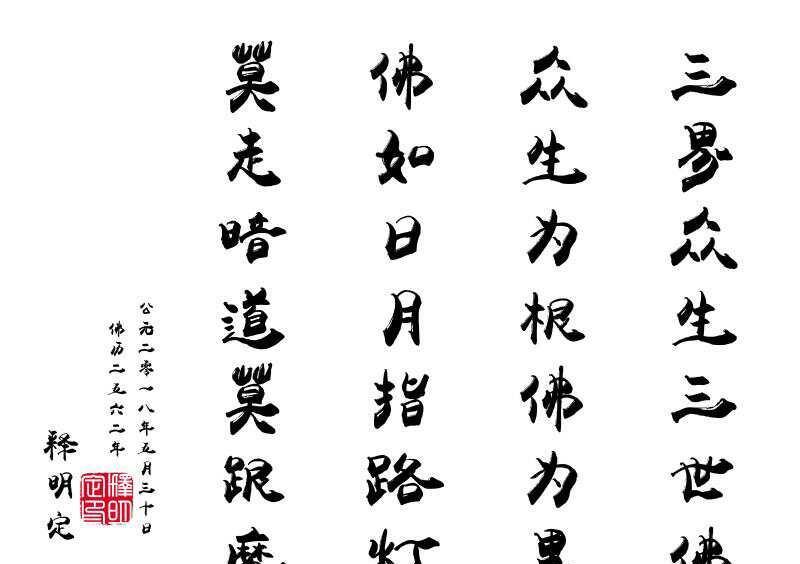 三界众生三世佛
众生为根佛为果
佛如日月指路灯
莫走暗道莫跟魔
公元二零一八年五月三十日
佛历二五六二年
释明定
釋明
定印